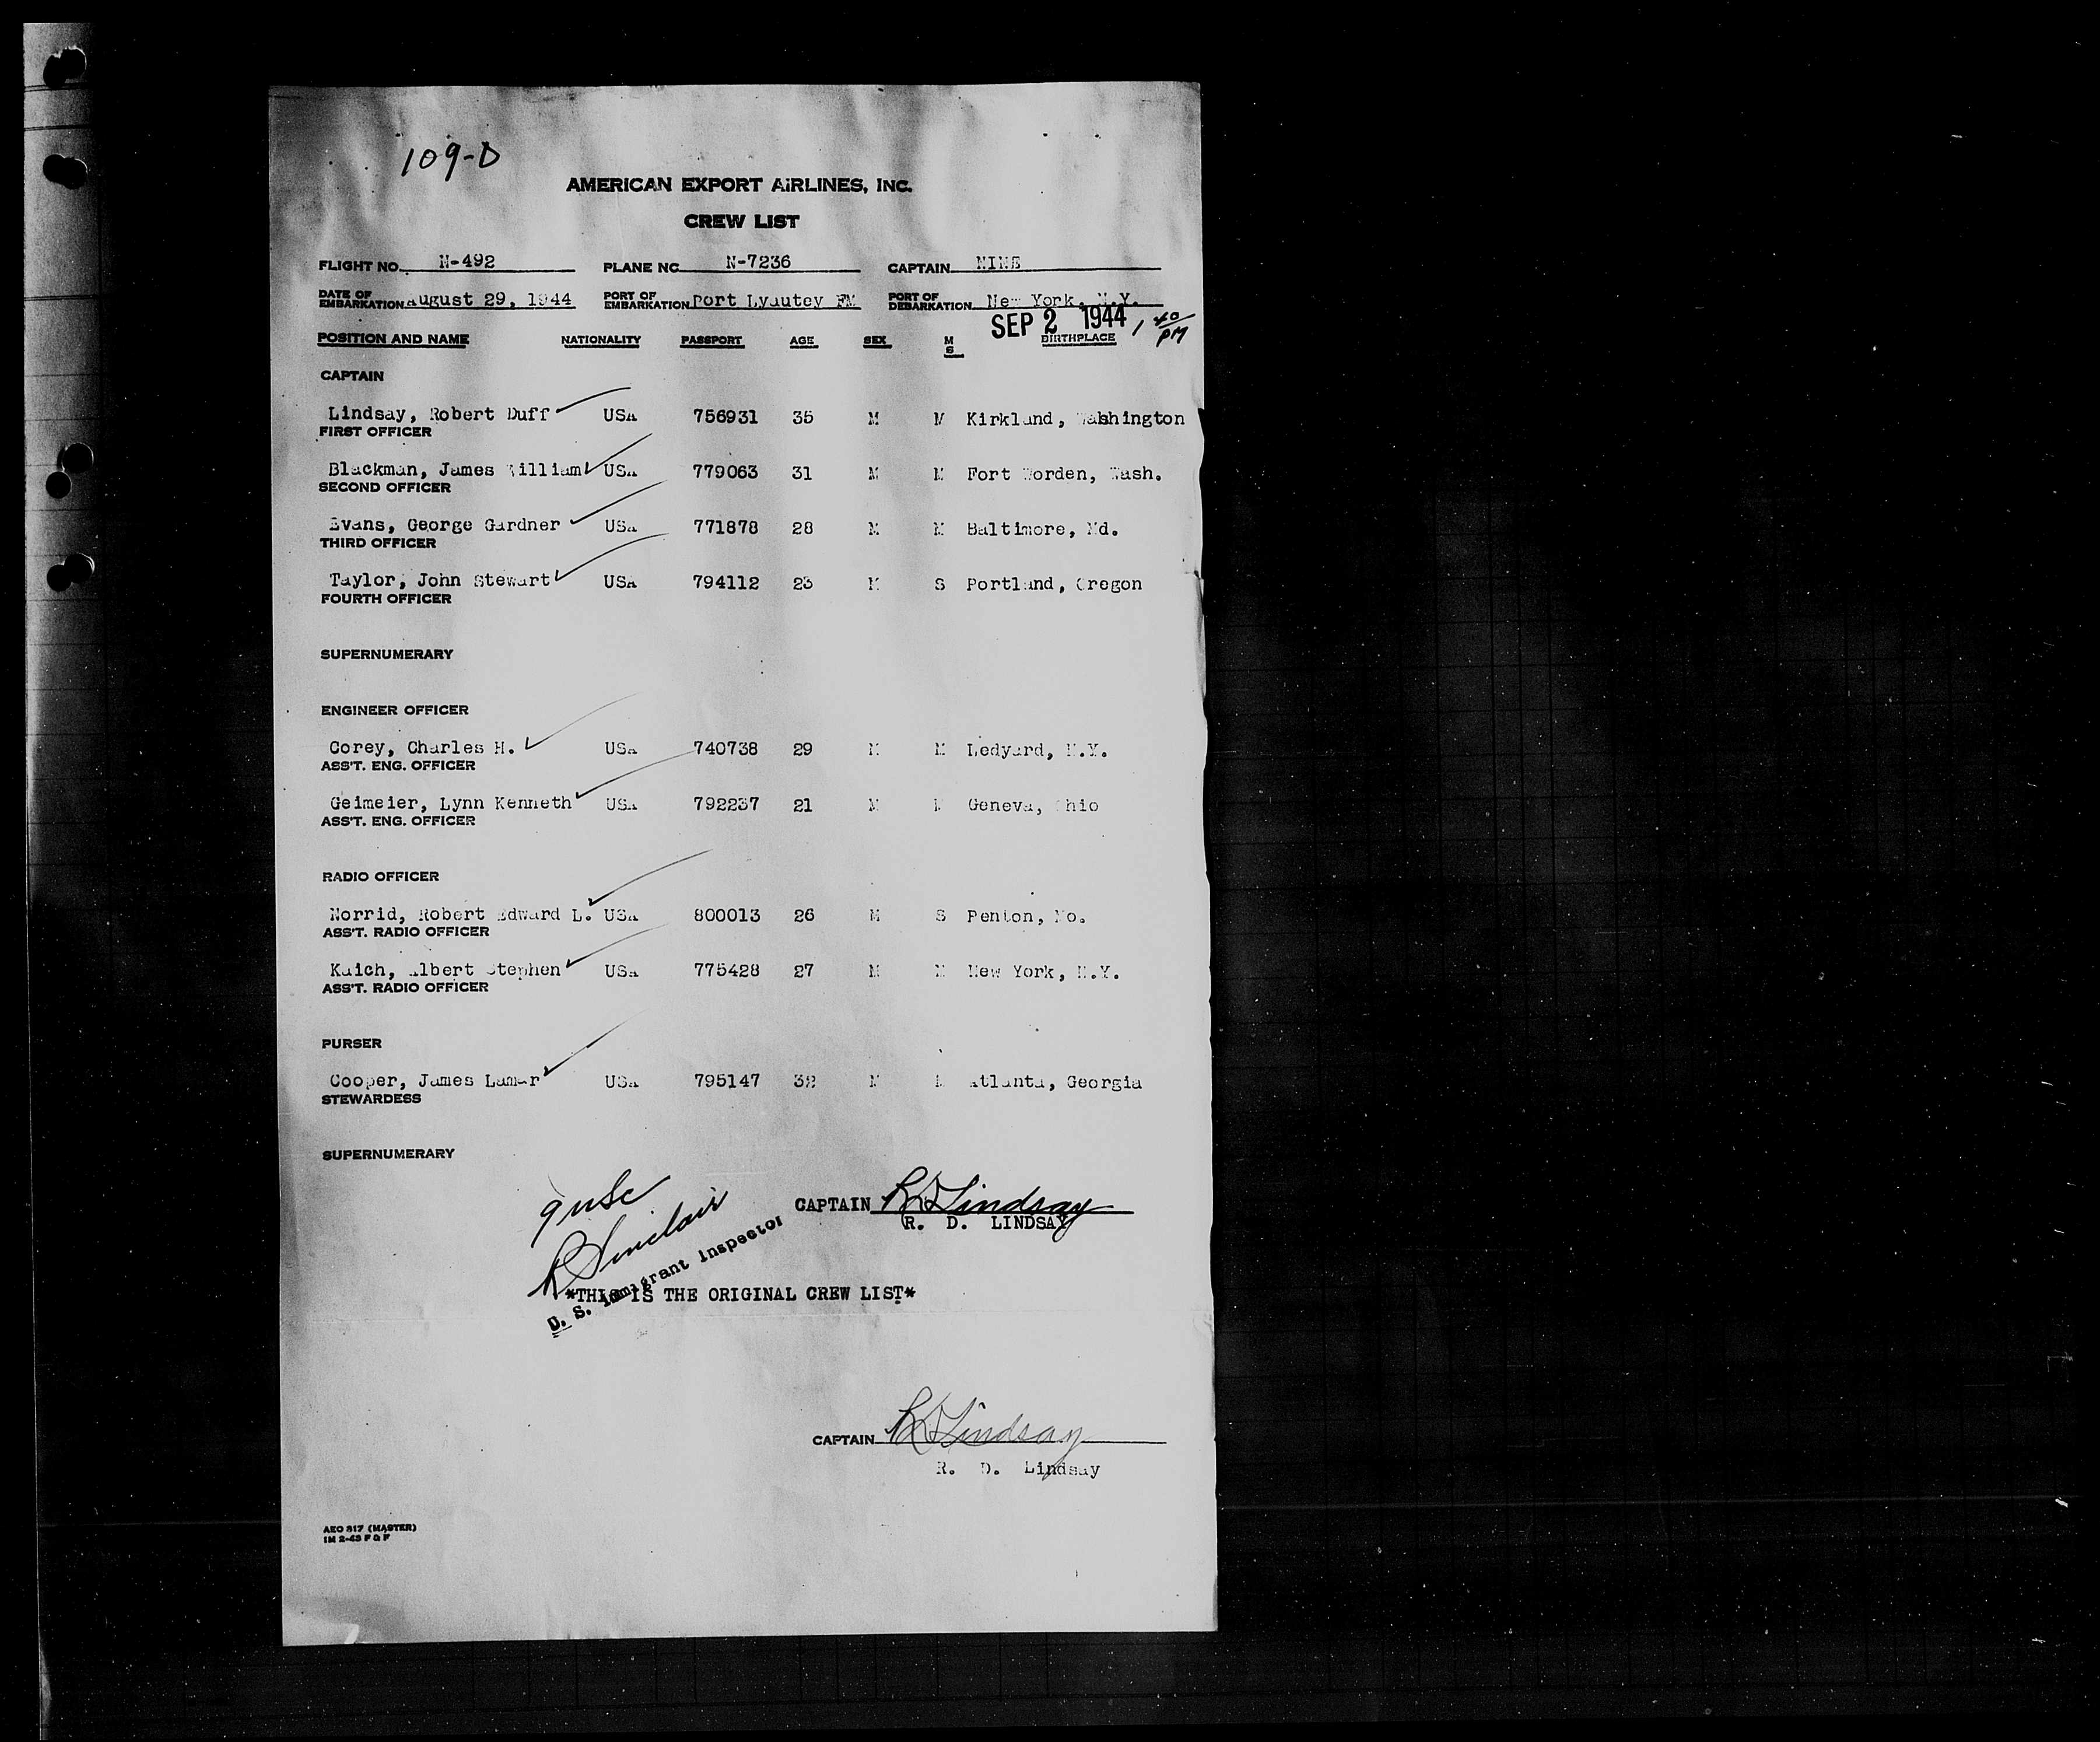 109-D
AMERICAN EXPORT AIRLINES, INC.
CREW LIST
FLIGHT NO. N-492 PLANE NO. N-7236 CAPTAIN NINE
DATE OF EMBARKATION August 29, 1944 PORT OF EMBARKATION Port Lyautey FM PORT OF DEBARKATION New York, N.Y.
SEP 2 1944 1 40 PM
POSITION AND NAME NATIONALITY PASSPORT AGE SEX M S BIRTHPLACE
CAPTAIN
Lindsay, Robert Duff USA 756931 35 M M Kirkland, Washington
FIRST OFFICER
Blackman, James William USA 779063 31 M M Fort Worden, Wash.
SECOND OFFICER
Evans, George Gardner USA 771878 28 M M Baltimore, Md.
THIRD OFFICER
Taylor, John Stewart USA 794112 23 M S Portland, Oregon
FOURTH OFFICER
SUPERNUMERARY
ENGINEER OFFICER
Corey, Charles H. USA 740738 29 M M Ledyard, N.Y.
ASS'T. ENG. OFFICER
Geimeier, Lynn Kenneth USA 792237 21 M M Geneva, Ohio
ASS'T. ENG. OFFICER
RADIO OFFICER
Norrid, Robert Edward L. USA 800013 26 M S Fenton, Mo.
ASS'T. RADIO OFFICER
Kaich, Albert Stephen USA 775428 27 M M New York, N.Y.
ASS'T. RADIO OFFICER
PURSER
Cooper, James Lamar USA 795147 32 M M Atlanta, Georgia
STEWARDESS
SUPERNUMERARY
9 USC
R Sinclair
U. S. Immigrant Inspector
CAPTAIN R D Lindsay
R. D. LINDSAY
*THIS IS THE ORIGINAL CREW LIST*
CAPTAIN R D Lindsay
R. D. Lindsay
AEO 317 (MASTER)
1M 2-43 P & F